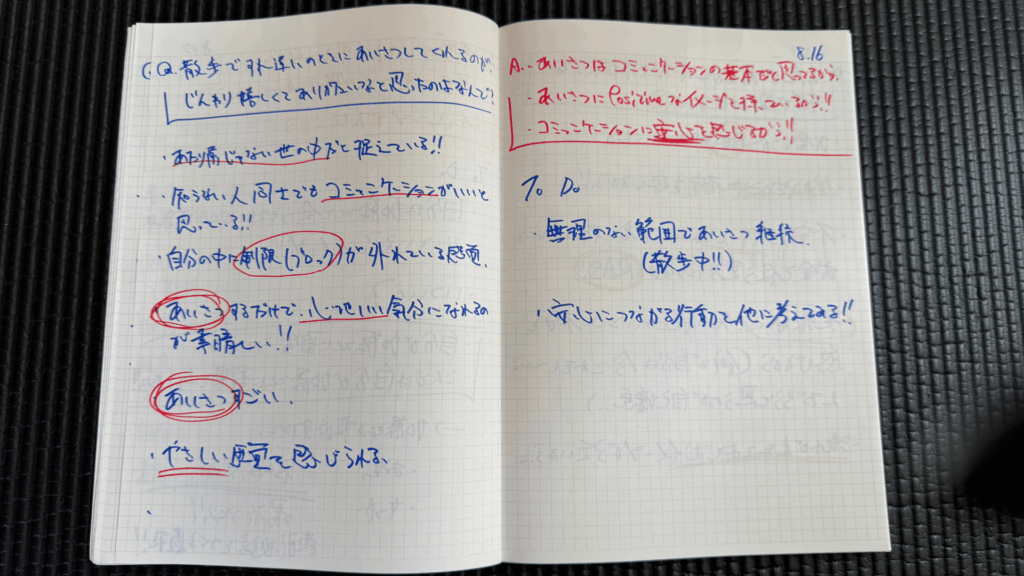 Q. 散歩で外述いのときにあいさつしてくれるのが、
じんわり嬉しくてありがたいなと思ったのはなんで?
・あたり前じゃない世の中だと捉えている!!
・知らない人同士でもコミュニケーションがいいと
思っている!!
・自分の中に制限(ブロック)が外れている感覚
・あいさつするだけで、心地いい気分になれるの
が素晴しい!!
・あいさつすごい.
・やさしい を感じられる、
8.16
A. ・あいさつはコミュニケーションの基本だと思ってるから.
・あいさつにPositiveなイメージを持っているから!!
・コミュニケーションに安心を感じるから!!
To Do
・無理のない範囲であいさつ継続.
(散歩中!!)
・安心につながる行動を他に考えてみる!!